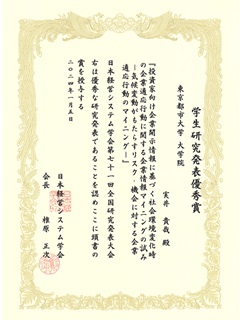 学生研究発表優秀賞
東京都市大学 大学院
実井 貴哉 殿
『投資家向け企業開示情報に基づく社会環境変化時
の企業適応行動に関する企業情報マイニングの試み
―気候変動がもたらすリスク・機会に対する企業
適応行動のマイニング―』
日本経営システム学会第七十一回全国研究発表大会
右は優秀な研究発表であることを認めここに頭書の
賞を授与する
二〇二四年一月五日
日本経営システム学会
会長 椎原 正次